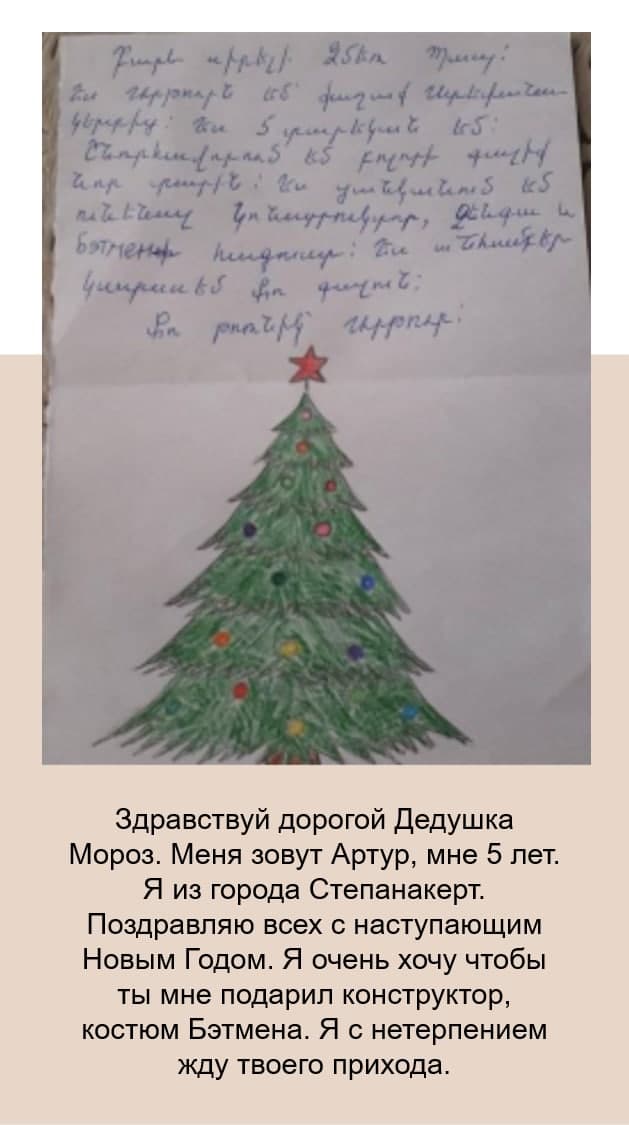 Բարև սիրելի Ձմեռ Պապ:
Ես Արթուրն եմ քաղաք Ստեփանա-
կերտից: Ես 5 տարեկան եմ:
Շնորհավորում եմ բոլորի գալիք
Նոր տարին: Ես ցանկանում եմ
ունենալ կոնստրուկտոր, և
հագուստ: Ես անհամբեր
կսպասեմ քո գալուն:
Քո թոռնիկ Արթուր:
Здравствуй дорогой Дедушка
Мороз. Меня зовут Артур, мне 5 лет.
Я из города Степанакерт.
Поздравляю всех с наступающим
Новым Годом. Я очень хочу чтобы
ты мне подарил конструктор,
костюм Бэтмена. Я с нетерпением
жду твоего прихода.